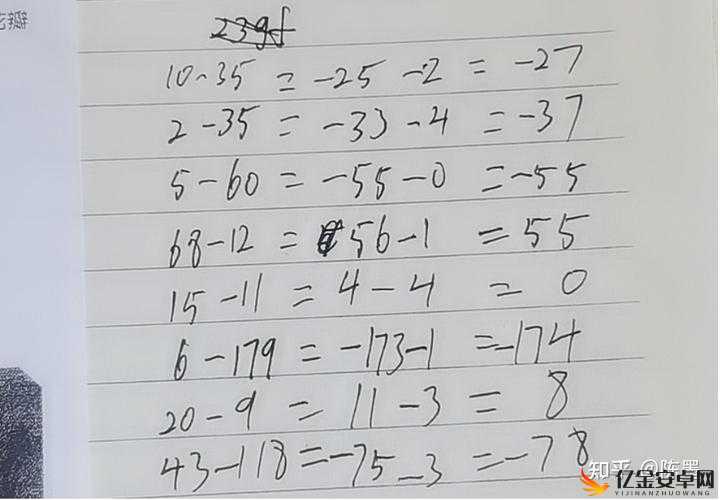 瓣
10-35 = -25-2 = -27
2-35 = -33-4 = -37
5-60 = -55-0 = -55
68-12 = 56-1 = 55
15-11 = 4-4 = 0
6-179 = -173-1 = -174
20-9 = 11-3 = 8
43-118 = -75-3 = -78
知乎 @陈黑
亿金安卓网
YIJINANZHUOWANG